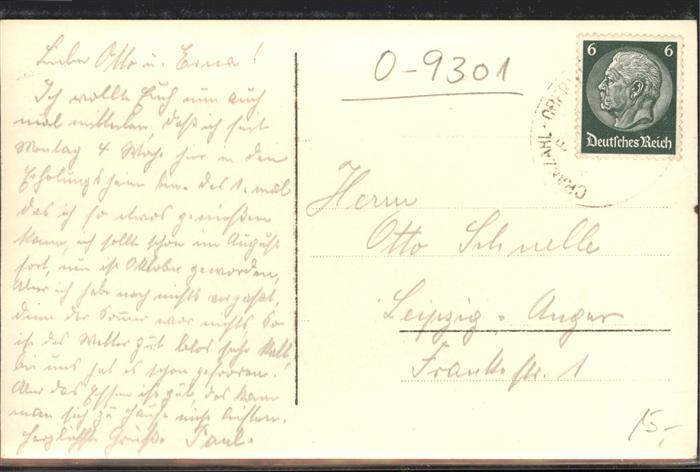 Lieber Otto u. Erna!
Ich wollte Euch nun auch
mal mitteilen, daß ich seit
Montag 4 Woche hir in den
Erholungsheim bin. des 1. mal
das ich so etwas genießen
kann, ich sollte schon im August
fort, nun ist Oktober geworden,
Aber ich habe noch nichts verpaßt,
denn der Sommer war nichts So
ist das Wetter gut blos sehr kalt
bei uns hat es schon gefrohren.
Aber das Essen ist gut, das kann
man sich zu Hause nicht leisten.
herzlichste Grüße Paul.
O-9301
6 6
Deutsches Reich
CRANZAHL-OBER
Herrn
Otto Schnelle
Leipzig-Anger
Frankestr. 1
15,-